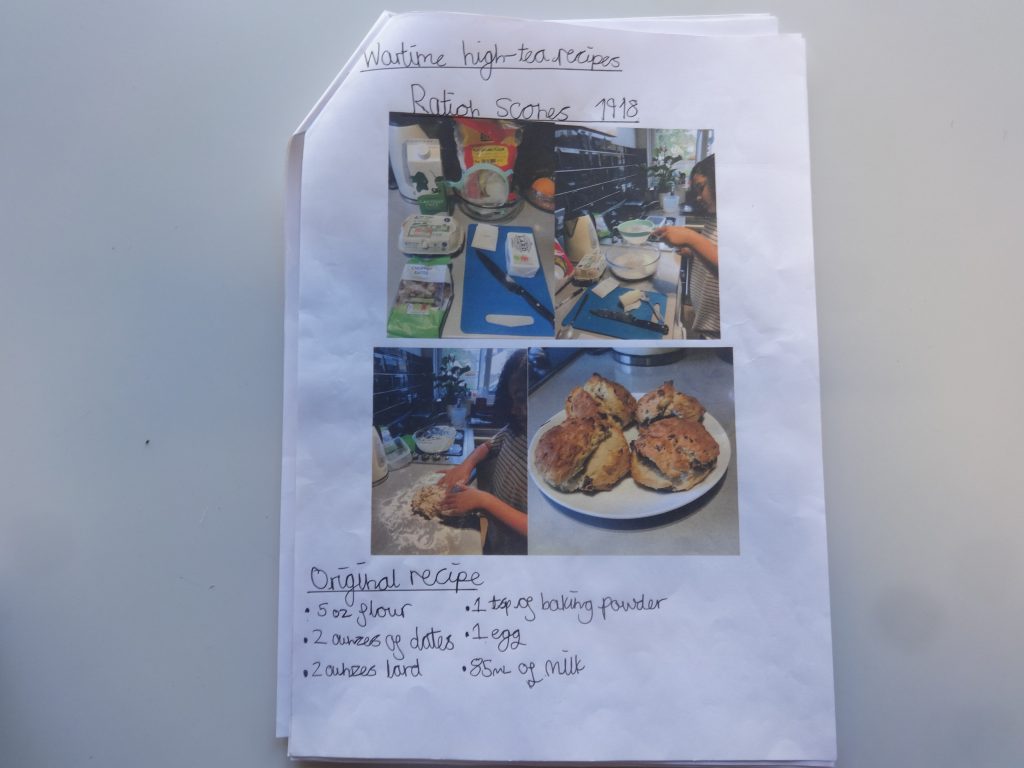 Wartime high-tea recipes
Ration scones 1918
Original recipe
• 5 oz flour
• 2 ounzes of dates
• 2 ounzes lard
• 1 tsp of baking powder
• 1 egg
• 85mL of milk